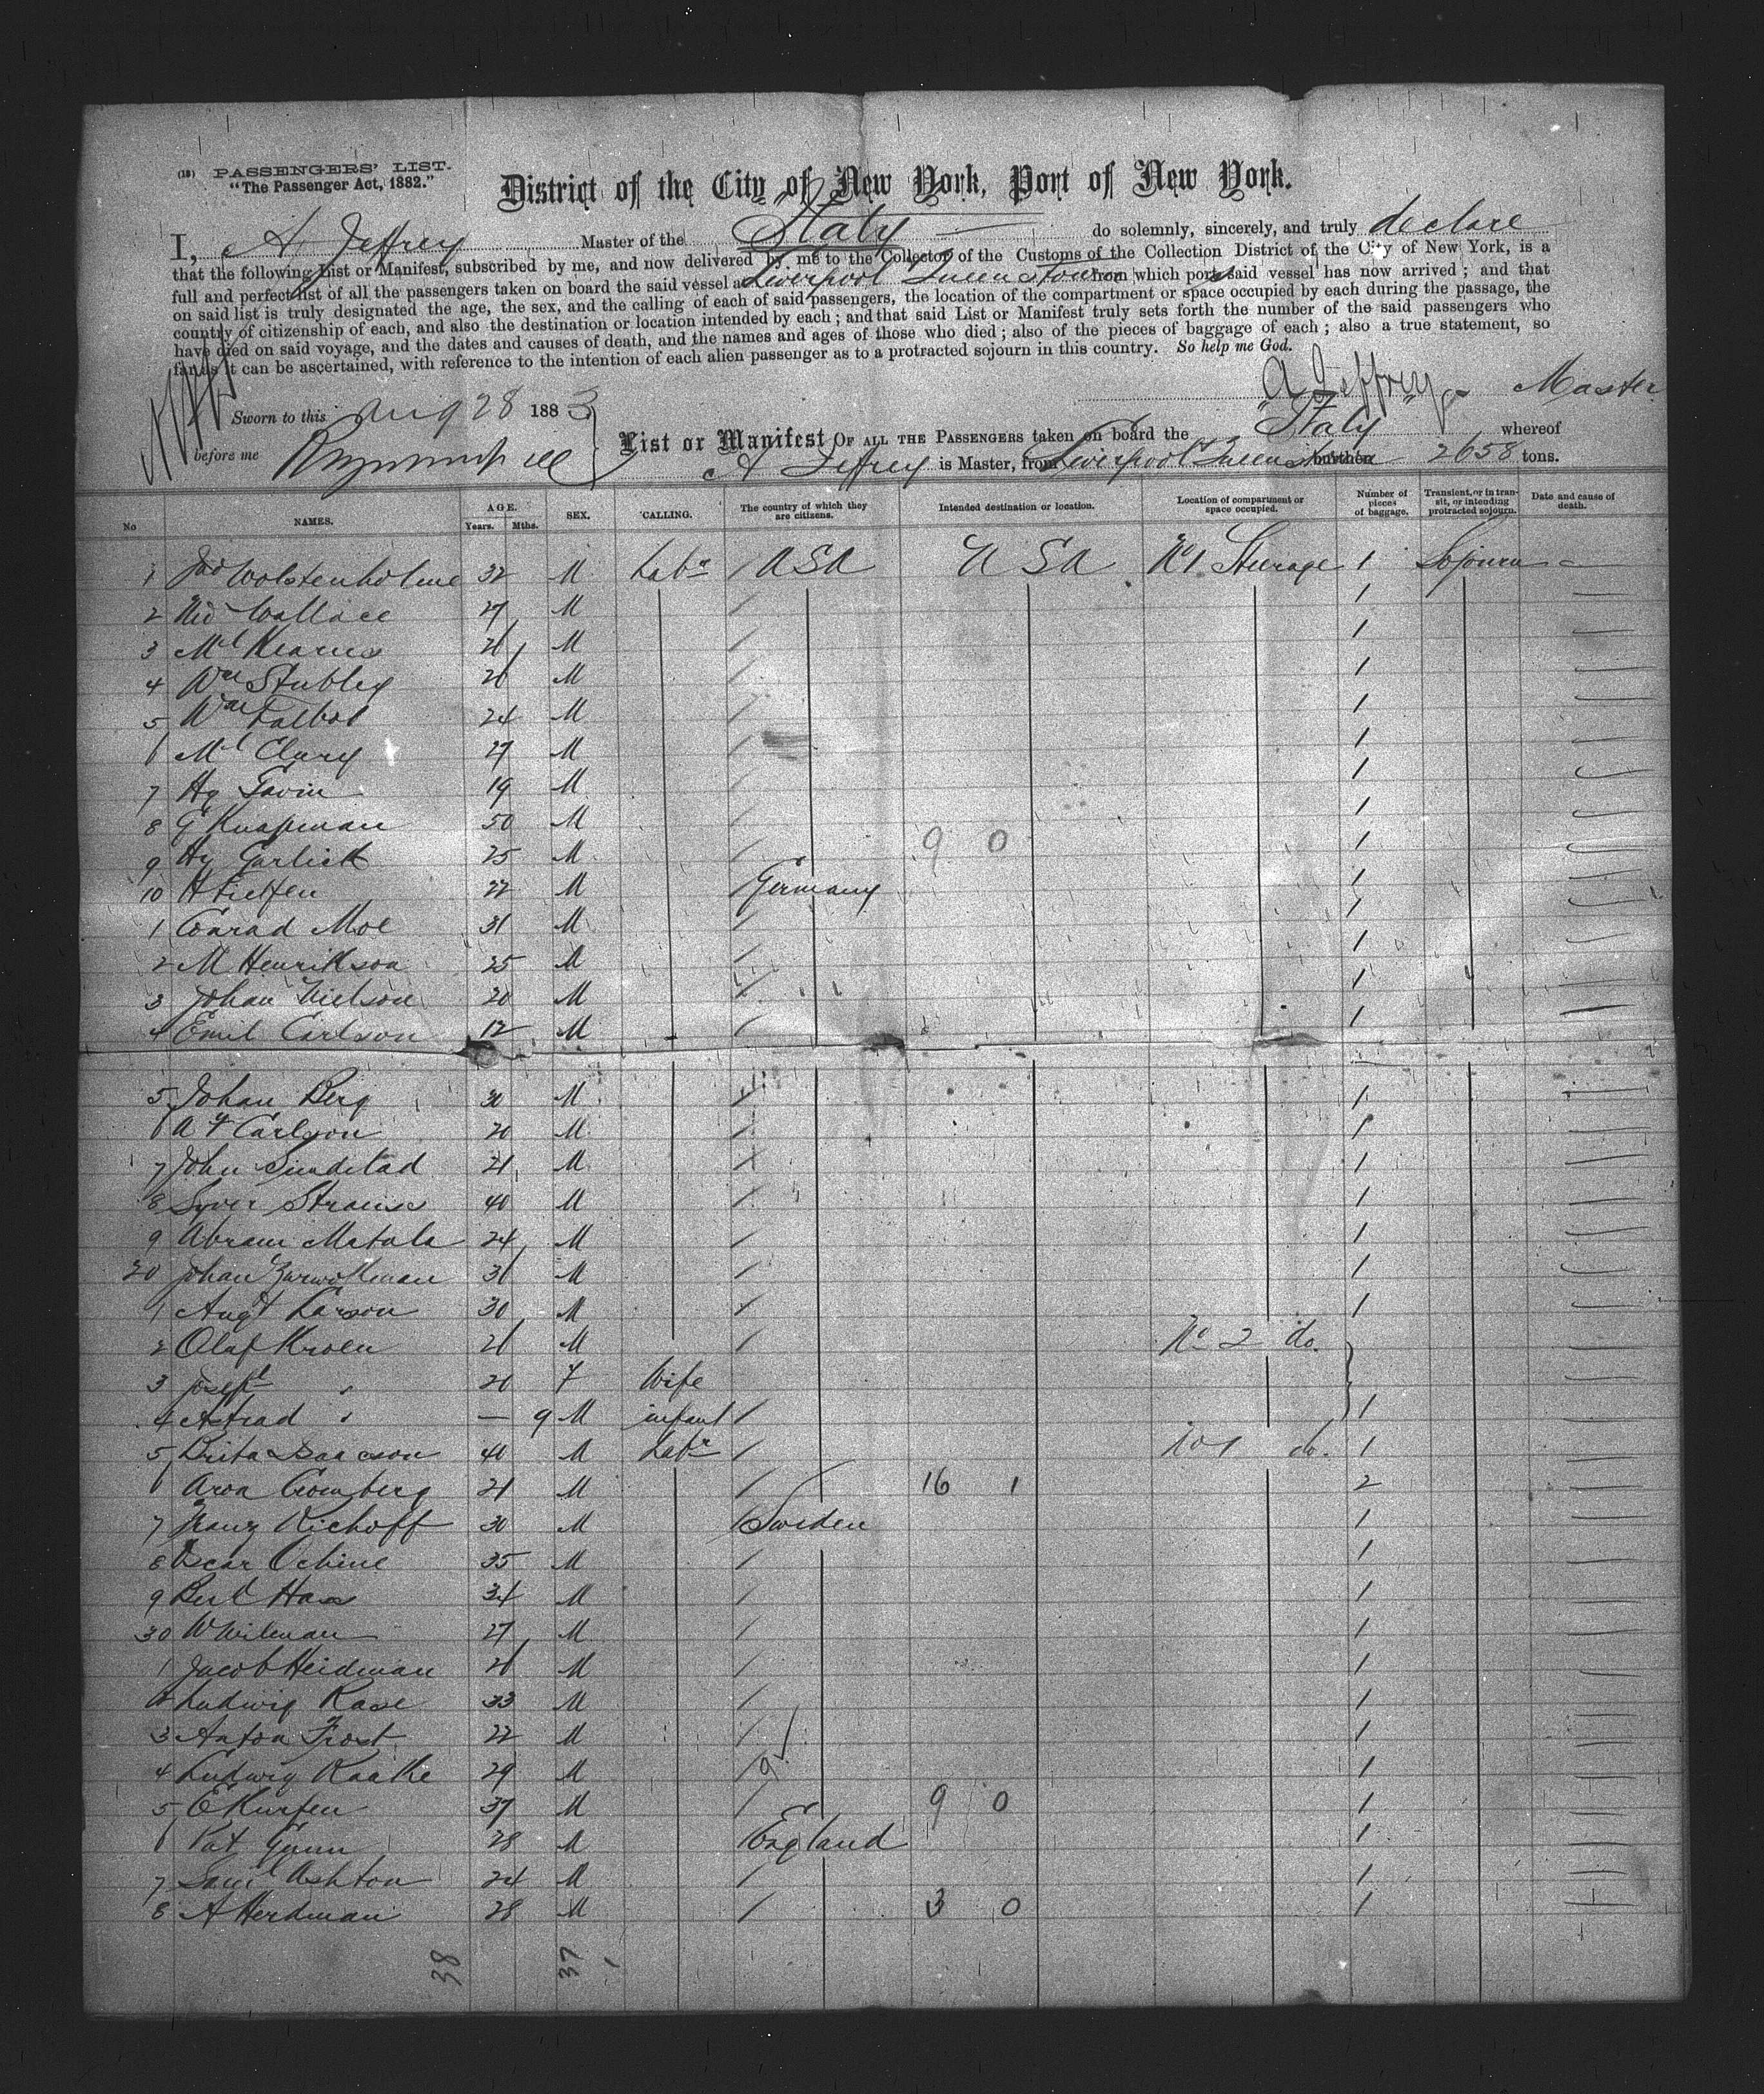 (18) PASSENGERS' LIST.
"The Passenger Act, 1882."
District of the City of New York, Port of New York.
I, A Jeffrey Master of the "Italy" do solemnly, sincerely, and truly declare
that the following List or Manifest, subscribed by me, and now delivered by me to the Collector of the Customs of the Collection District of the City of New York, is a
full and perfect list of all the passengers taken on board the said vessel at Liverpool Queenstown from which ports said vessel has now arrived; and that
on said list is truly designated the age, the sex, and the calling of each of said passengers, the location of the compartment or space occupied by each during the passage, the
country of citizenship of each, and also the destination or location intended by each; and that said List or Manifest truly sets forth the number of the said passengers who
have died on said voyage, and the dates and causes of death, and the names and ages of those who died; also of the pieces of baggage of each; also a true statement, so
far as it can be ascertained, with reference to the intention of each alien passenger as to a protracted sojourn in this country. So help me God.
A Jeffrey Master
Sworn to this Aug 28 1883
before me
List or Manifest OF ALL THE PASSENGERS taken on board the "Italy" whereof
A Jeffrey is Master, from Liverpool Queenstown burthen 2658 tons.
No NAMES. AGE. Years. Mths. SEX. CALLING. The country of which they are citizens. Intended destination or location. Location of compartment or space occupied. Number of pieces of baggage. Transient, or in transit, or intending protracted sojourn. Date and cause of death.
1 Jno Wolstenholme 32 M Labr / USA USA No 1 Steerage 1 Sojourn —
2 Wallace 27 M / 1 —
3 Ml Kearns 21 M / 1 —
4 Wm Stubley M / 1 —
5 Wm Talbot 24 M / 1 —
6 Ml Clary 27 M / 1 —
7 Hy Gavin 19 M / 1 —
8 G Knapman 50 M / 1 —
9 Hy Garlick 25 M / 9 0 1 —
10 H 22 M / Germany 1 —
1 Conrad Moe 31 M / 1 —
2 M Henrikson 25 M / 1 —
3 Johan Nielson 20 M / 1 —
4 Emil Carlson 12 M / 1 —
5 Johan Berg 30 M / 1 —
6 Carlson 20 M / 1 —
7 John 21 M / 1 —
8 Syver 40 M / 1 —
9 Abram Matala 24 M / 1 —
20 Johan M / 1 —
1 Augt Larson 30 M / 1 —
2 Olaf Kroen M / No 2 do. —
3 Joseph " F Wife —
4 " — 9 M infant / 1 —
5 Brita Isaacson 40 M Labr / No 1 do. 1 —
6 Cromberg 21 M / 16 1 2 —
7 Franz Kichoff 30 M / Sweden 1 —
8 Oscar 35 M / 1 —
9 Hass 34 M / 1 —
30 W Wilman 27 M / 1 —
1 Jacob Heidman M / 1 —
2 Ludwig Rase 33 M / 1 —
3 Anton Frost 22 M / 1 —
4 Ludwig Raake 29 M / 9 1 —
5 37 M / 9 0 1 —
6 Pat Gunn 28 M / England 1 —
7 Saml Ashton 24 M / 1 —
8 A Herdman 28 M / 3 0 1 —
38 37 1